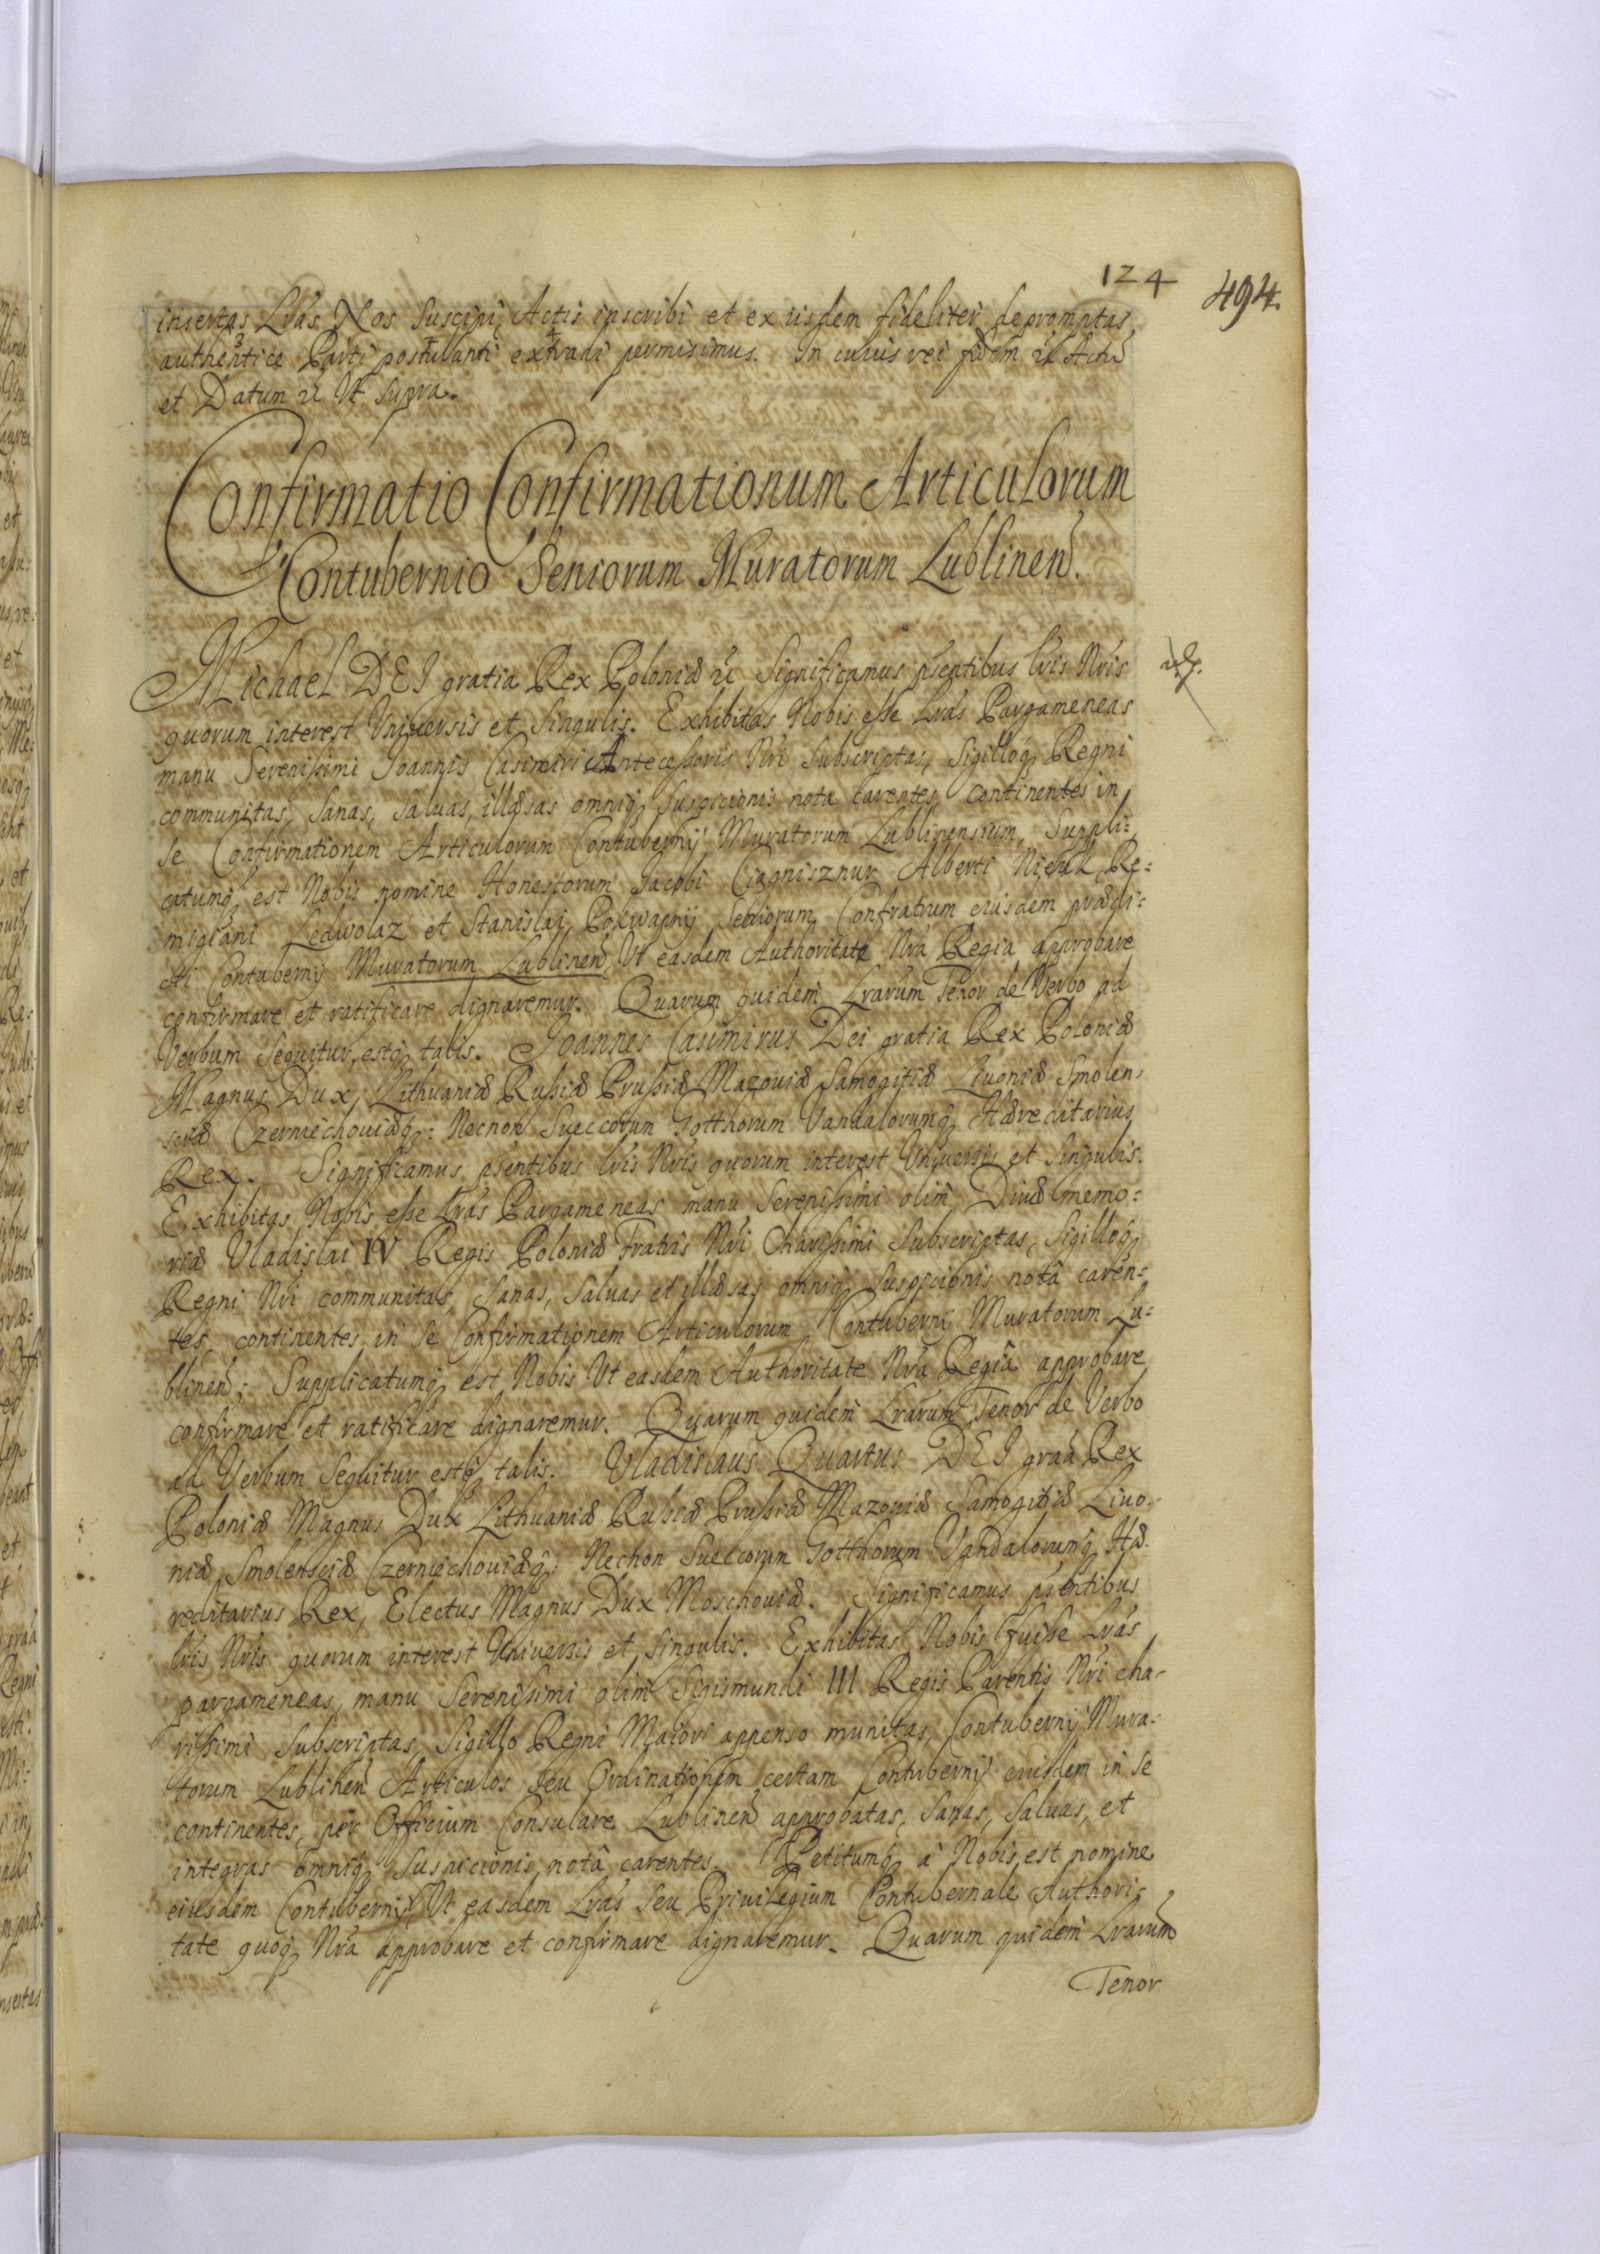 124
494.
insertas Lras Nos Suscipi, Actis inscribi et ex iisdem fideliter depromptas,
authentice Parti postulanti extradi permisimus. In cuius rei fidem &c Actũ
et Datum &c Ut supra.
Confirmatio Confirmationum Articulorum
Contubernio Seniorum Muratorum Lublinen̄.
Michael DEI gratia Rex Poloniæ &c Significamus p̃sentibus Lris Nr̃is
quorum interest Universis et Singulis. Exhibitas Nobis esse Lras Pargameneas
manu Serenissimi Joannis Casimiri Antecessoris Nr̃i Subscriptas, Sigilloq̃ Regni
communitas, Sanas, Saluas, illæsas omniq̃ Suspicionis nota carentes, continentes in
se Confirmationem Articulorum Contubernij Muratorum Lublinensium, Suppli:
catumq̃ est Nobis nomine Honestorum Jacobi Alberti Re:
migiani et Stanislai Seniorum Confratrum eiusdem prædi:
cti Contubernij Muratorum Lublinen̄, Ut easdem Authoritate Nr̃a Regia approbare
confirmare et ratificare dignaremur. Quarum quidem Lrarum Tenor de Verbo ad
Verbum Sequitur, estq̃ talis. Joannes Casimirus Dei gratia Rex Poloniæ
Magnus Dux Lithuaniæ Russiæ Prussiæ Mazouiæ Samogitiæ Liuoniæ Smolen:
sciæ Czerniechouiæq̃: Necnon Sueccorum Gotthorum Vandalorumq̃ Hæreditarius
Rex. Significamus p̃sentibus Lris Nr̃is quorum interest Universis et Singulis.
Exhibitas Nobis esse Lras Pargameneas manu Serenissimi olim Diuæ memo:
riæ Vladislai IV Regis Poloniæ Fratris Nr̃i Charissimi Subscriptas, Sigilloq̃
Regni Nr̃i communitas, Sanas, Saluas et illæsas, omniq̃ Suspicionis notâ caren:
tes, continentes in se Confirmationem Articulorum Contubernij Muratorum Lu:
blinen̄; Supplicatumq̃ est Nobis Ut easdem Authoritate Nr̃a Regiâ approbare
confirmare et ratificare dignaremur. Quarum quidem Lrarum Tenor de Verbo
ad Verbum Sequitur estq̃ talis. Vladislaus Quartus DEI graã Rex
Poloniæ Magnus Dux Lithuaniæ Russiæ Prussiæ Mazouiæ Samogitiæ Liuo:
niæ Smolensciæ Czerniechouiæq̃: Necnon Suecorum Gotthorum Vandalorumq̃ Hæ:
reditarius Rex, Electus Magnus Dux Moschouiæ. Significamus p̃sentibus
Lris Nr̃is quorum interest Universis et Singulis. Exhibitas Nobis fuisse Lras
pargameneas, manu Serenissimi olim Sigismundi III Regis Parentis Nr̃i cha-
rissimi Subscriptas, Sigillo Regni Maiori appenso munitas, Contubernij Mura-
torum Lublinen̄ Articulos seu Ordinationem certam Contubernij eiusdem in se
continentes, per Officium Consulare Lublinen̄ approbatas, Sanas, Saluas, et
integras omniq̃ Suspicionis notâ carentes. Petitumq̃ à Nobis est nomine
eiusdem Contubernij, Ut easdem Lras seu Priuilegium Contubernale Authori:
tate quoq̃ Nr̃a approbare et confirmare dignaremur. Quarum quidem Lrarum
Tenor